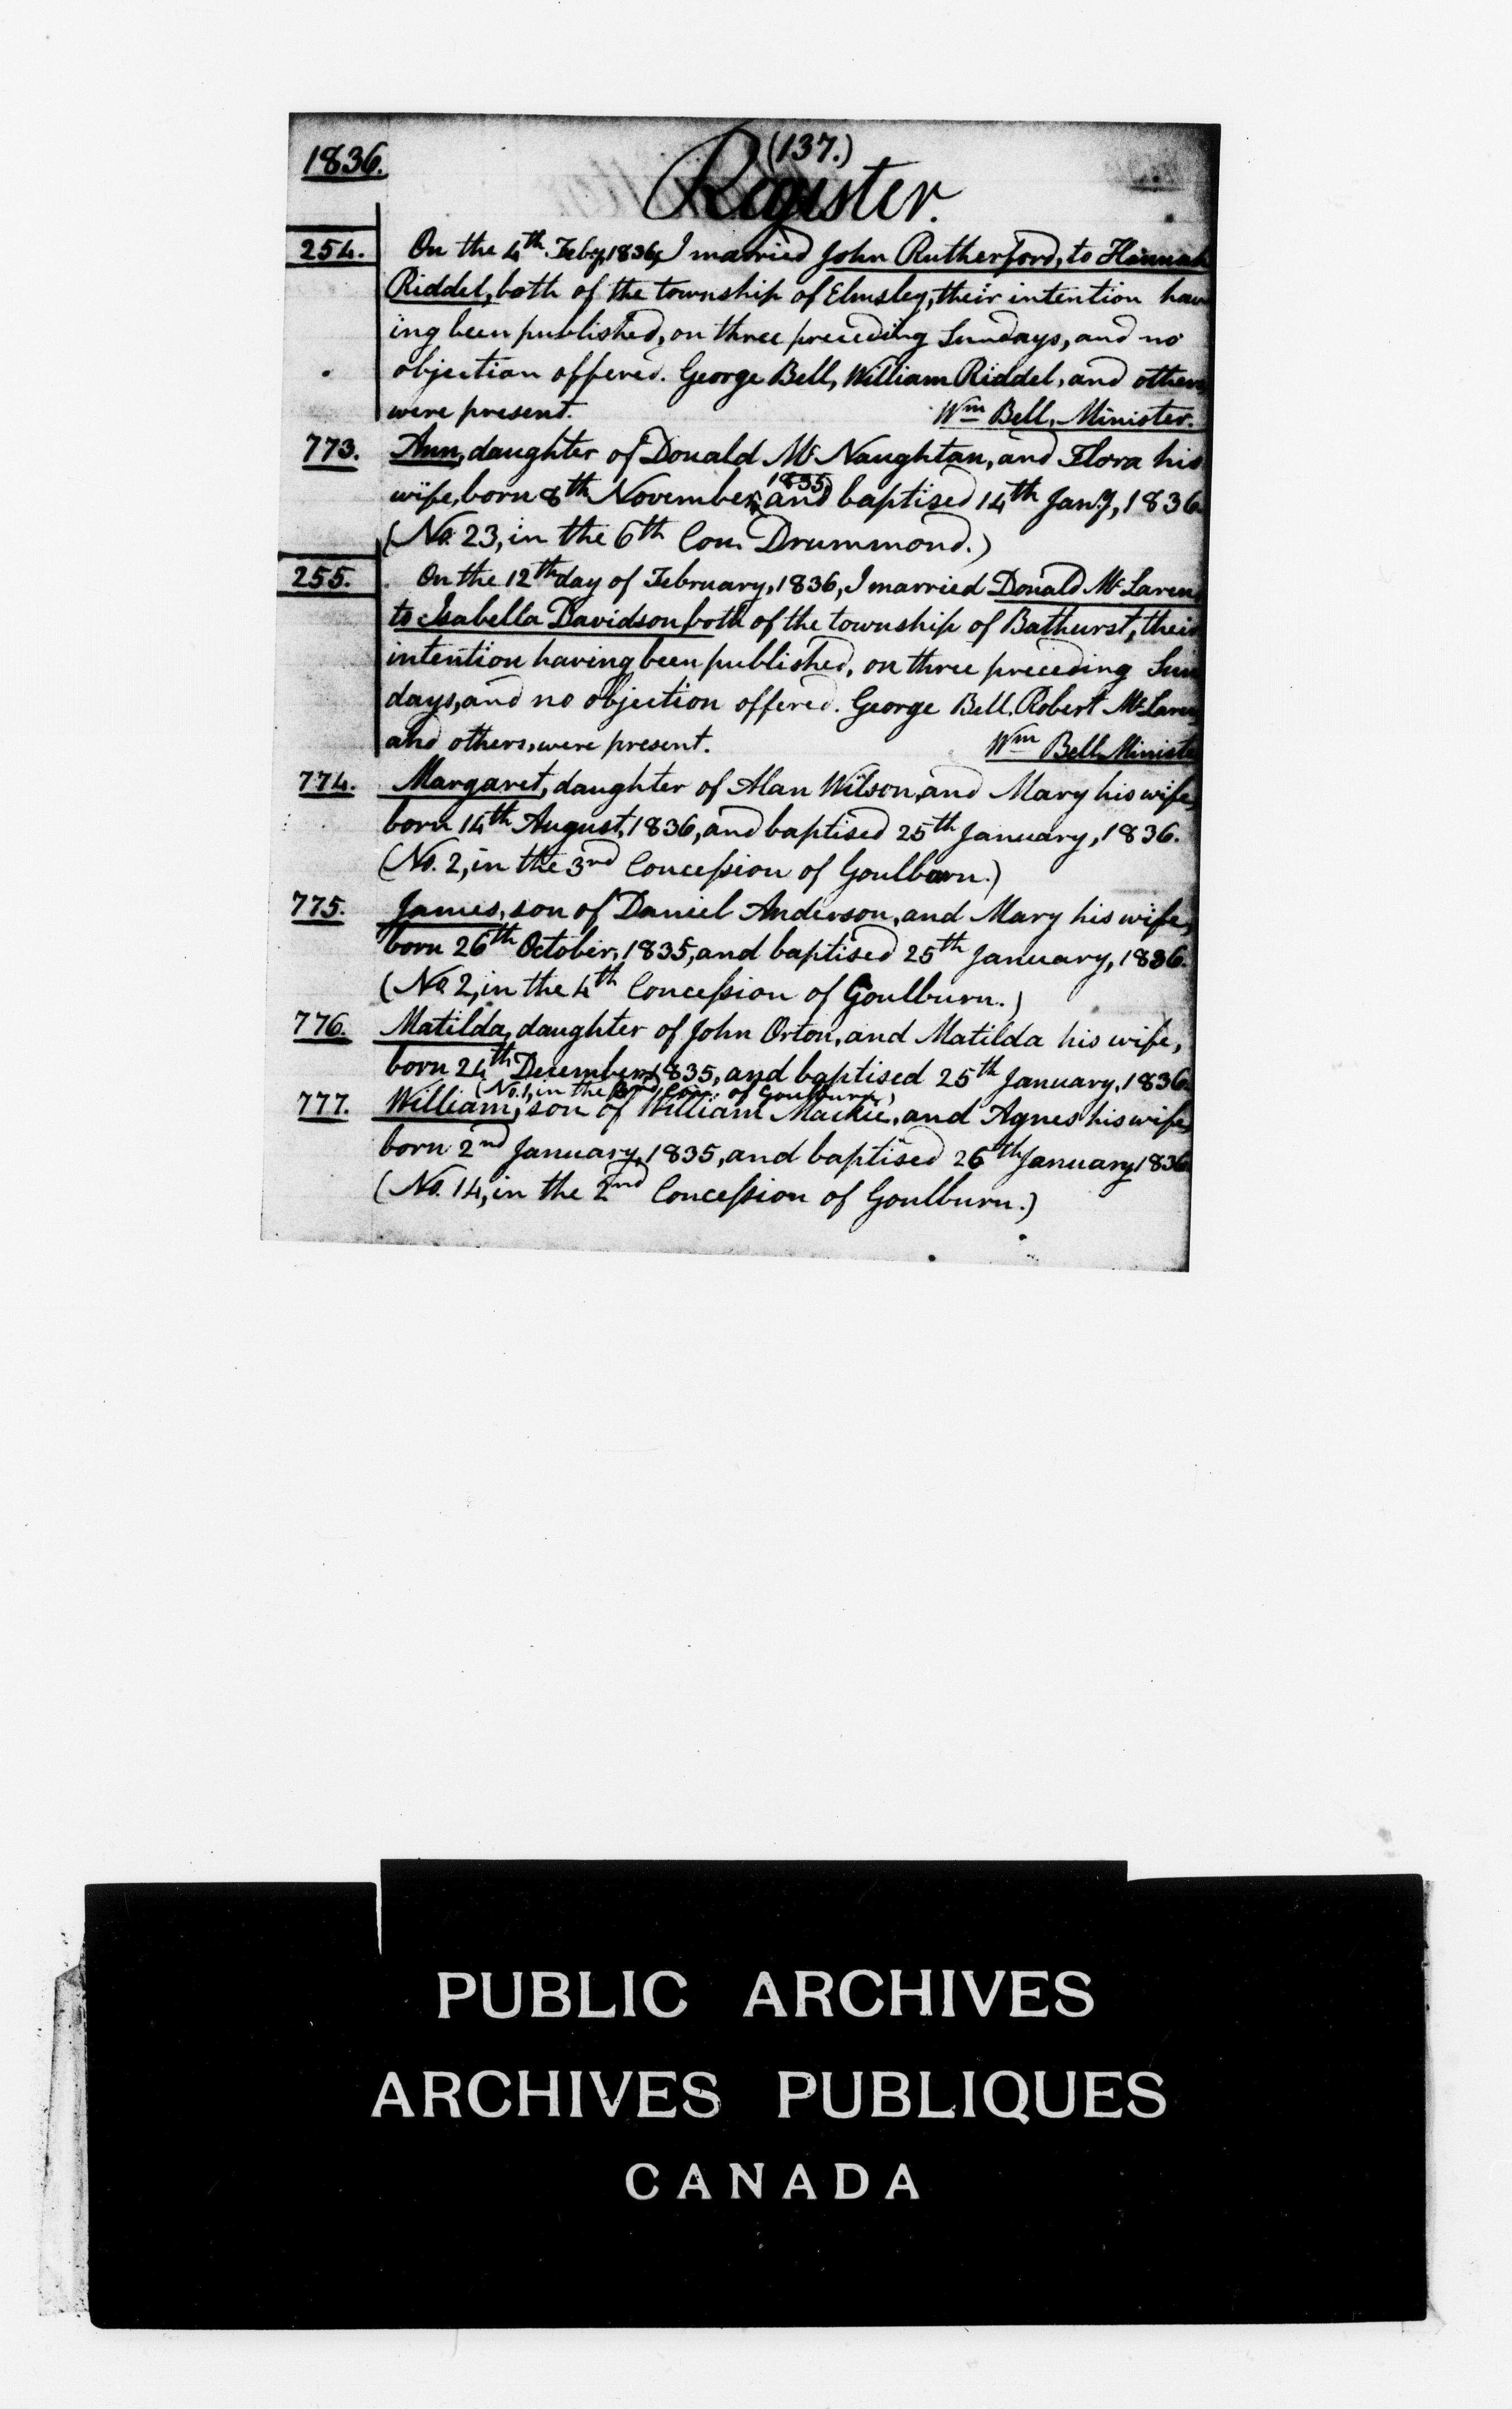 (137.)
1836.
Register.
254. On the 4th Feby, 1836, I married John Rutherford, to Hannah
Riddel, both of the township of Elmsley, their intention hav
ing been published, on three preceding Sundays, and no
objection offered. George Bell, William Riddel, and others
were present. Wm Bell, Minister.
773. Ann, daughter of Donald McNaughtan, and Flora his
wife, born 8th November, 1835, and baptised 14th Jany, 1836.
(No. 23, in the 6th Con. Drummond.)
255. On the 12th day of February, 1836, I married Donald McLaren
to Isabella Davidson both of the township of Bathurst, their
intention having been published, on three preceding Sun
days, and no objection offered. George Bell, Robert McLaren
and others, were present. Wm Bell Ministe
774. Margaret, daughter of Alan Wilson, and Mary his wife,
born 14th August, 1836, and baptised 25th January, 1836.
(No. 2, in the 3rd Concession of Goulburn.)
775. James, son of Daniel Anderson, and Mary his wife,
born 26th October, 1835, and baptised 25th January, 1836.
(No. 2, in the 4th Concession of Goulburn.)
776. Matilda, daughter of John Orton, and Matilda his wife,
born 24th December, 1835, and baptised 25th January, 1836.
(No. 1, in the 3rd Con: of Goulburn.)
777. William, son of William Mackie, and Agnes his wife,
born 2nd January, 1835, and baptised 26th January 1836
(No. 14, in the 2nd Concession of Goulburn.)
PUBLIC ARCHIVES
ARCHIVES PUBLIQUES
CANADA